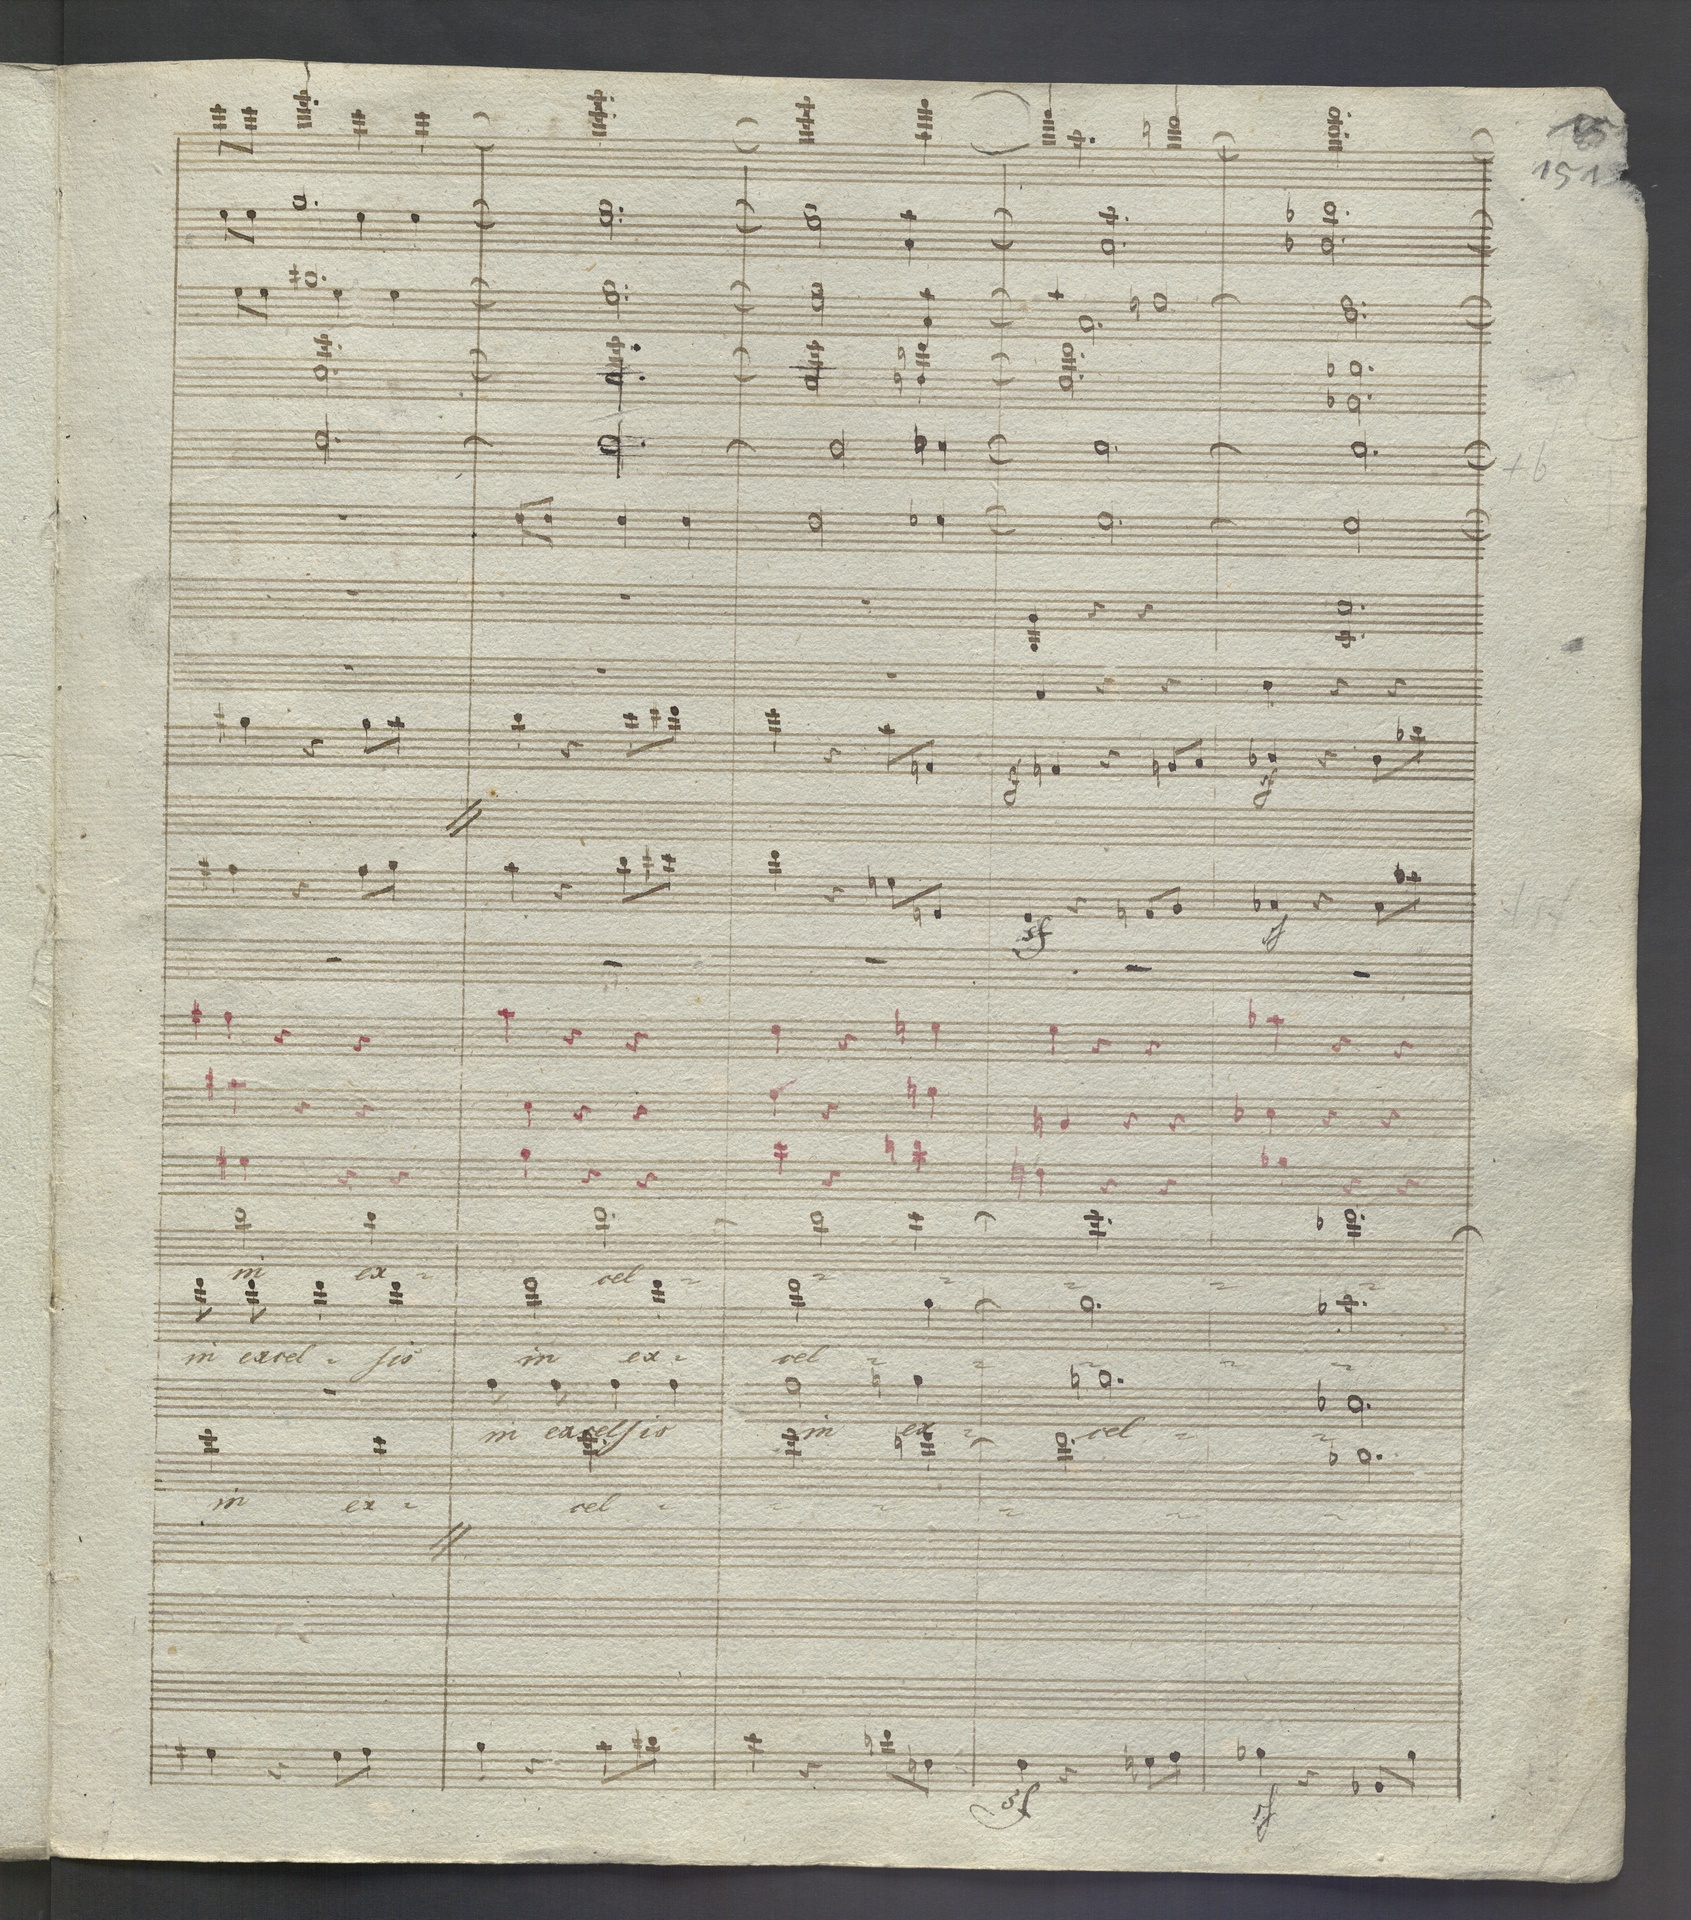 151
+b
sf sf
sf sf
in ex - cel - - - - - -
in excel - sis in ex - cel - - - - -
in excelsis in ex - cel - -
in ex - cel - - - - - -
sf sf